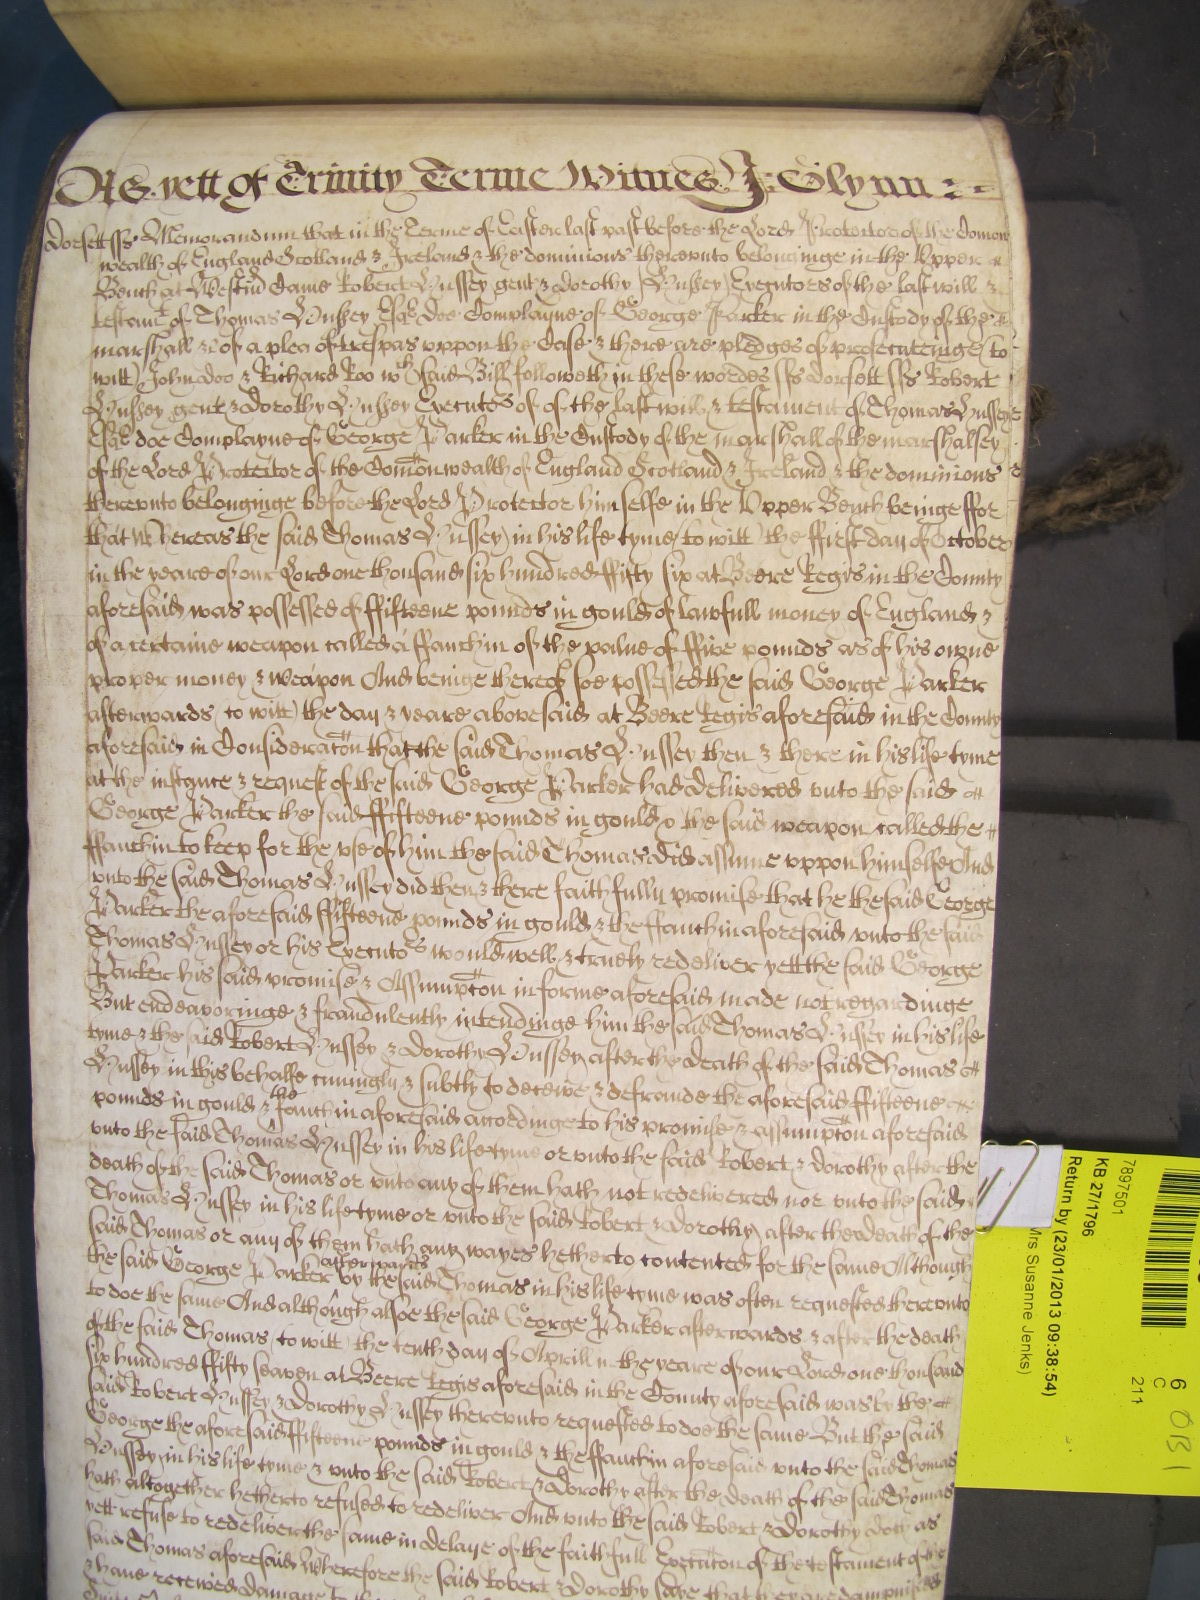 As yett of Trinity Terme Witnes J: Glynn
Dorsett ss Memorandum that in the Terme of Easter last past before the Lord Protector of the Comon
wealth of England Scotland & Ireland & the dominions thereunto belonginge in the Upper
Bench at Westm̄ Came Robert Hussey gent & Dorothy Hussey Executors of the last will &
testamt of Thomas Hussey Esqr doe Complayne of George Parker in the Custody of the
marshall &c of a plea of trespas uppon the Case & there are pledges of prosecuteinge (to
witt) John doo & Richard Roo wch said Bill followeth in these wordes ss Dorsett ss Robert
Hussey gent & Dorothy Hussey Executors of of the last will & testament of Thomas Hussey
Esqr doe Complayne of George Parker in the Custody of the marshall of the marshalsey
of the Lord Protector of the Comonwealth of England Scotland & Ireland & the dominions
thereunto belonginge before the Lord Protector himselfe in the Upper Bench beinge ffor
that Whereas the said Thomas Hussey in his life tyme (to witt) the ffirst day of October
in the yeare of our Lord one thousand six hundred ffifty six at Beere Regis in the County
aforesaid was possessed of ffifteene pounds in gould of lawfull money of England &
of a certaine weapon called a ffauchin of the value of ffive pounds as of his owne
proper money & weapon And beinge thereof soe possessed the said George Parker
afterwards (to witt) the day & yeare abovesaid at Beere Regis aforesaid in the County
aforesaid in Consideracon that the said Thomas Hussey then & there in his life tyme
at the instance & request of the said George Parker had delivered unto the said
George Parker the said ffifteene pounds in gould & the said weapon called the
ffauchin to keep for the use of him the said Thomas did assume uppon himselfe And
unto the said Thomas Hussey did then & there faithfully promise that he the said George
Parker the aforesaid ffifteene pounds in gould & the ffauchin aforesaid unto the said
Thomas Hussey or his Executors would well & truely redeliver yett the said George
Parker his said promise & Assumpcon in forme aforesaid made not regardinge
But endeavoringe & fraudulently intendinge him the said Thomas Hussey in his life
tyme & the said Robert Hussey & Dorothy Hussey after the death of the said Thomas
Hussey in this behalfe cuningly & subtly to deceive & defraude the aforesaid ffifteene
pounds in gould & the fauchin aforesaid accordinge to his promise & assumpcon aforesaid
unto the said Thomas Hussey in his life tyme or unto the said Robert & Dorothy after the
death of the said Thomas or unto any of them hath not redelivered nor unto the said
Thomas Hussey in his life tyme or unto the said Robert & Dorothy after the death of the
said Thomas or any of them hath any wayes hetherto contented for the same Although
the said George Parker afterwards by the said Thomas in his life tyme was often requested thereunto
to doe the same And although alsoe the said George Parker afterwards & after the death
of the said Thomas (to witt) the tenth day of Aprill in the yeare of our Lord one thousand
six hundred ffifty seaven at Beere Regis aforesaid in the County aforesaid was by the
said Robert Hussey & Dorothy Hussey thereunto requested to doe the same But the said
George the aforesaid ffifteene pounds in gould & the ffauchin aforesaid unto the said Thomas
Hussey in his life tyme & unto the said Robert & Dorothy after the death of the said Thomas
hath altogether hetherto refused to redeliver And unto the said Robert & Dorothy doth as
yett refuse to redeliver the same in delaye of the faithfull Execucon of the testament of the
said Thomas aforesaid Wherefore the said Robert & Dorothy saye that they are dampnified
& have received damage to the
7897501
KB 27/1796
Return by (23/01/2013 09:38:54)
Mrs Susanne Jenks)
6
C
211
OB1